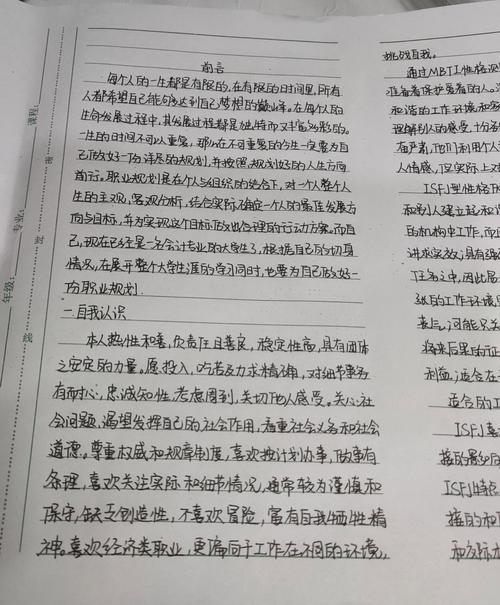 前言
每个人的一生都是有限的,在有限的时间里,所有
人都希望自己能够达到自己梦想的巅峰。在每个人的
生命发展过程中,其发展过程都是独特而又丰富多彩的。
一生的时间不可以重复,那么在不重复的今生一定要为自
己做好一份详尽的规划,并按照规划好的人生方向
前行。职业规划是在个人与组织的结合下,对一个整个人
生的主观,客观分析,结合实际确定一个人的最佳发展方
向与目标,并为实现这个目标做出合理的行动方案。而自
己,现在已经是一名会计专业的大学生了,根据自己的切身
情况,在展开整个大学生涯的学习同时,也要为自己做好一
份职业规划.
一.自我认识
本人热性和善,负责任且善良,稳定性高,具有团体
之安定的力量。愿投入,吃苦及力求精确,对细节事务
有耐心,忠诚知性,考虑周到,关切他人感受。关心社
会问题,渴望发挥自己的社会作用,看重社会义务和社会
道德。尊重权威和规章制度,喜欢按计划办事,做事有
条理,喜欢关注实际和细节情况,通常较为谨慎和
保守,缺乏创造性,不喜欢冒险,富有自我牺牲性精
神。喜欢经济类职业,更偏向于工作在不同的环境,
挑战自我。
通过MBTI性格测
准备着保护爱着的人。
和谐的工作环境和
理解别人的感受,十分
有严肃,他们利用个人
人情感,但实际上
ISFJ型性格
和别人建立起和
的机构中工作,而
讲求实效,具有强
任务之中,因此
纵的工作环境
娄后,可能只关
将来后果的
利益,适合在
适合的工
ISFJ喜
接的最好的
ISFJ性格
接的和
和友际
课程:
专业:
年级:
密
封
线